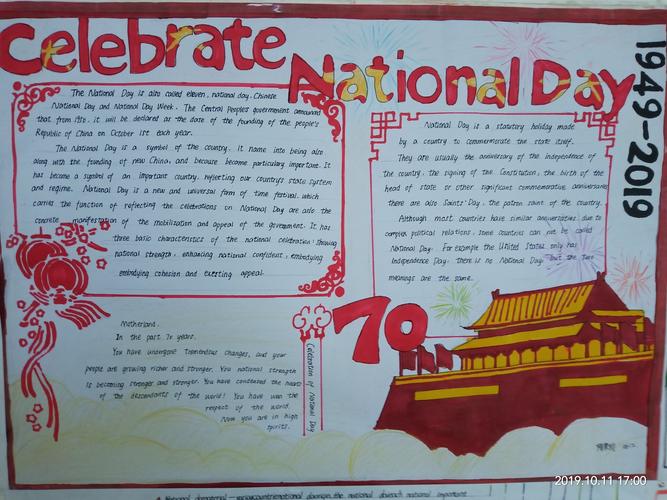 Celebrate
National Day
1949-2019
The National Day is also called eleven, national day, Chinese
National Day and National Day Week. The Central People's government announced
that from 1950, it will be declared as the date of the founding of the people's
Republic of China on October 1st each year.
The National Day is a symbol of the country. It name into being also
along with the founding of new China, and because become particularly important. It
has become a symbol of an important country, reflecting our country's state system
and regime. National Day is a new and universal form of time festival, which
carries the function of reflecting the celebrations on National Day are also the
concrete manifestation of the mobilization and appeal of the government. It has
three basic characteristics of the national celebration: showing
national strength, enhancing national confident, embodying
embodying cohesion and exciting appeal.
National Day is a statutory holiday made
by a country to commemorate the state itself.
They are usually the anniversary of the independence of
the country, the signing of the Constitution, the birth of the
head of state or other significant commemorative anniversaries
there are also Saints' Day, the patron saint of the country.
Although most countries have similar anniversaries, due to
complex political relations, some countries can not be called
National Day. For example the United States only has
Independence Day, there is no National Day, but the two
meanings are the same.
70
Motherland.
In the past 70 years.
You have undergone tremendous changes, and your
people are growing richer and stronger. You national strength
is becoming stronger and stronger. You have condensed the hearts
of the descendants of the world! You have won the
respect of the world.
Now you are in high
spirits.
Celebration of National Day
2019.10.11 17:00